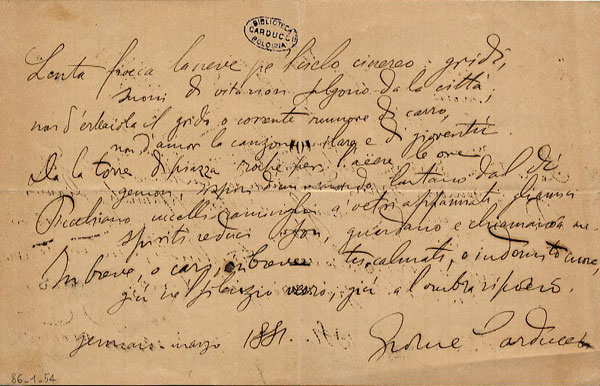 BIBLIOTECA CARDUCCI BOLOGNA
Lenta fiocca la neve pe 'l cielo cinereo: gridi,
suoni di vita non salgono da la città,
non d'erbaiola il grido o corrente rumore di carro,
non d'amor la canzon ilare e di gioventù.
Da la torre di piazza roche per l'aere le ore
gemon, sospiri d'un mondo lontano dal dì.
Picchiano uccelli raminghi a' vetri appannati:
spiriti reduci son, guardano e chiamano a me.
In breve, o cari, in breve tu calmati, o indomito cuore,
giù ne 'l silenzio verrò, giù a l'ombra riposerò.
gennaio-marzo 1881. Giosue Carducci
86-1-54